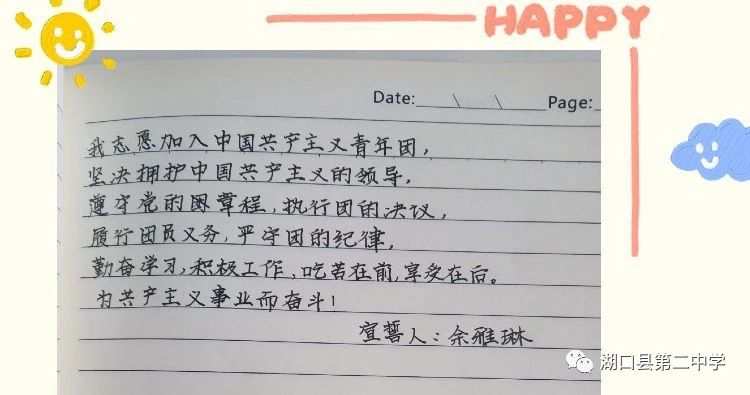 HAPPY
Date: \ \ Page:
我志愿加入中国共产主义青年团，
坚决拥护中国共产主义的领导，
遵守党的困章程，执行团的决议，
履行团员义务，严守团的纪律，
勤奋学习，积极工作，吃苦在前，享受在后。
为共产主义事业而奋斗！
宣誓人：余雅琳
湖口县第二中学